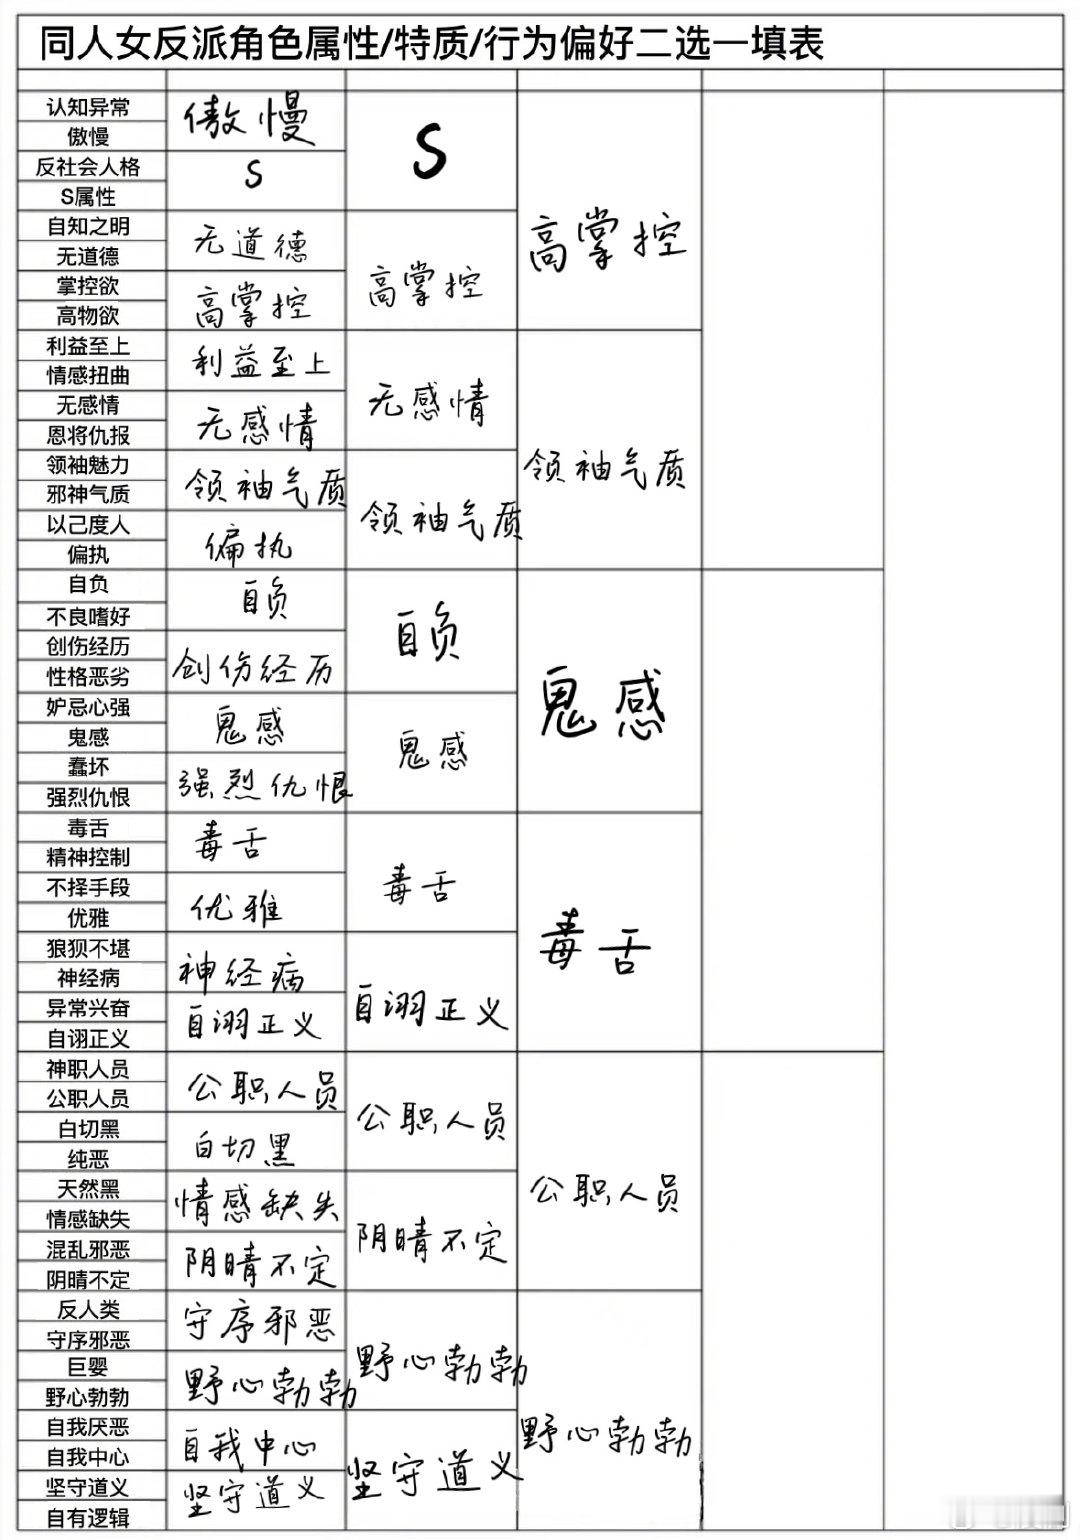 同人女反派角色属性/特质/行为偏好二选一填表
认知异常
傲慢
反社会人格
S属性
自知之明
无道德
掌控欲
高物欲
利益至上
情感扭曲
无感情
恩将仇报
领袖魅力
邪神气质
以己度人
偏执
自负
不良嗜好
创伤经历
性格恶劣
妒忌心强
鬼感
蠢坏
强烈仇恨
毒舌
精神控制
不择手段
优雅
狼狈不堪
神经病
异常兴奋
自诩正义
神职人员
公职人员
白切黑
纯恶
天然黑
情感缺失
混乱邪恶
阴晴不定
反人类
守序邪恶
巨婴
野心勃勃
自我厌恶
自我中心
坚守道义
自有逻辑
傲慢
S
无道德
高掌控
利益至上
无感情
领袖气质
偏执
自负
创伤经历
鬼感
强烈仇恨
毒舌
优雅
神经病
自诩正义
公职人员
白切黑
情感缺失
阴晴不定
守序邪恶
野心勃勃
自我中心
坚守道义
S
高掌控
无感情
领袖气质
自负
鬼感
毒舌
自诩正义
公职人员
阴晴不定
野心勃勃
坚守道义
高掌控
领袖气质
鬼感
毒舌
公职人员
野心勃勃